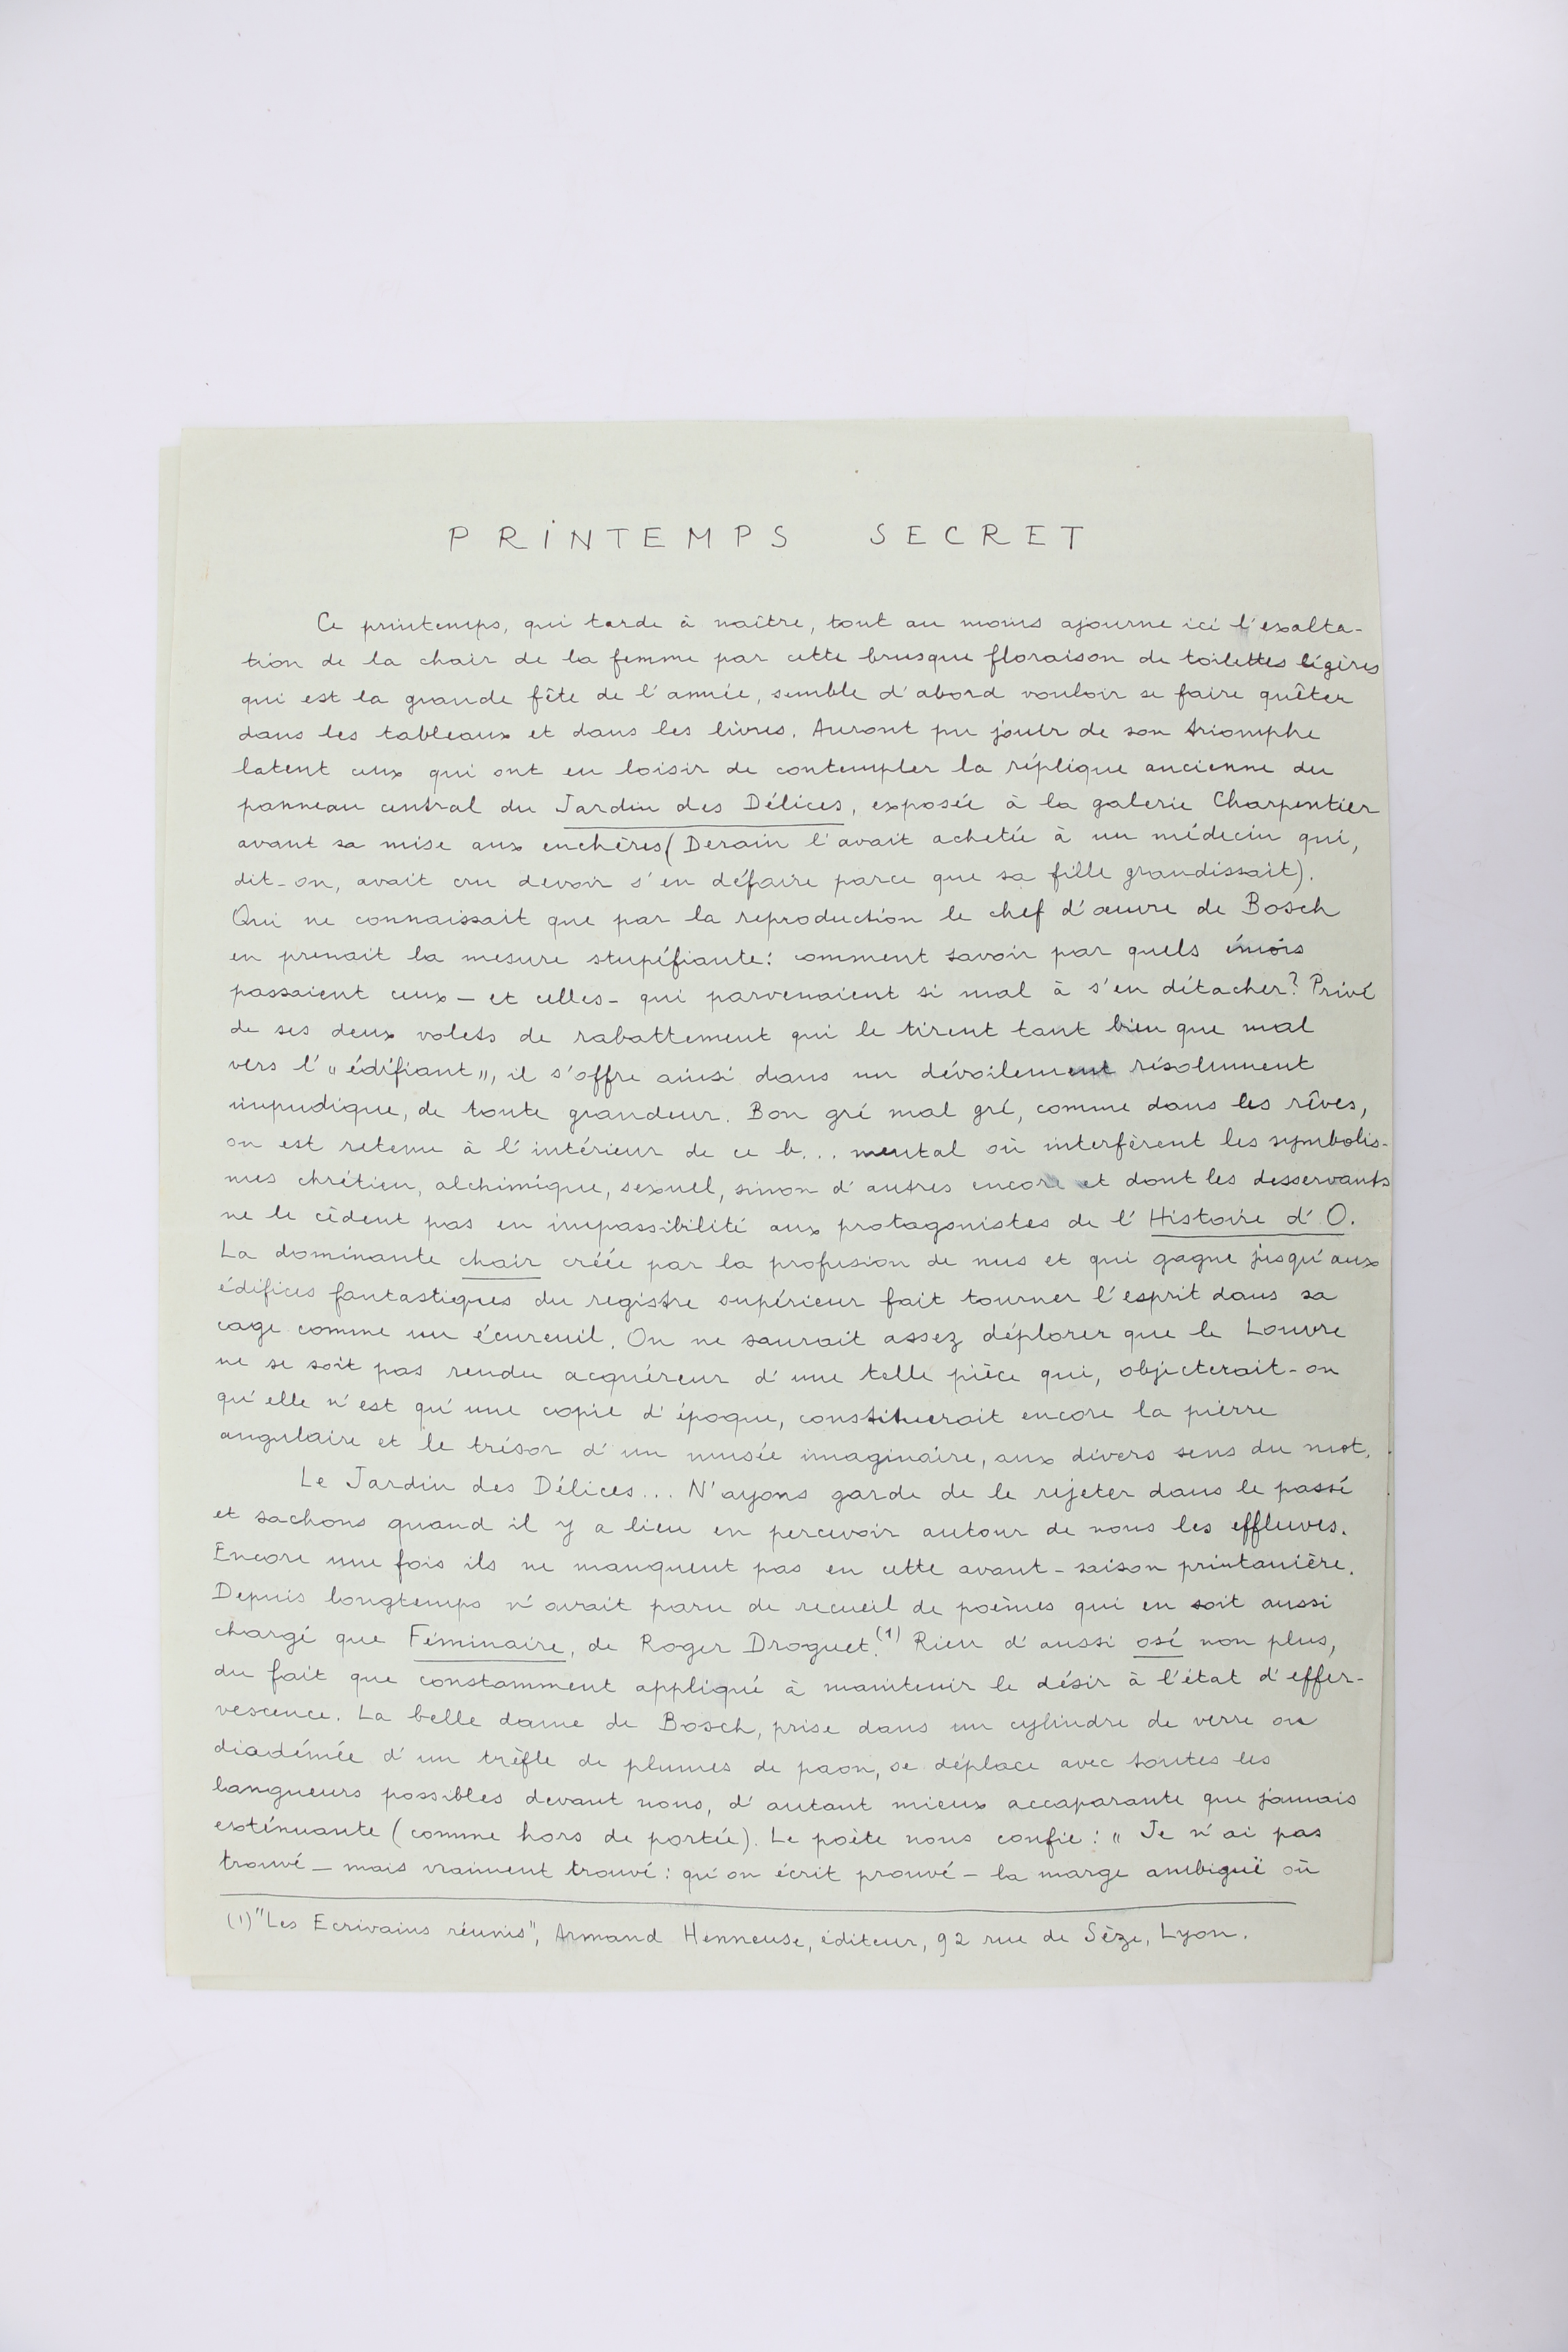 PRINTEMPS SECRET
Ce printemps, qui tarde à naître, tout au moins ajourne ici l'exalta-
tion de la chair de la femme par cette brusque floraison de toilettes légères
qui est la grande fête de l'année, semble d'abord vouloir se faire quêter
dans les tableaux et dans les livres. Auront pu jouir de son triomphe
latent ceux qui ont eu loisir de contempler la réplique ancienne du
panneau central du Jardin des Délices, exposée à la galerie Charpentier
avant sa mise aux enchères (Derain l'avait achetée à un médecin qui,
dit-on, avait cru devoir s'en défaire parce que sa fille grandissait).
Qui ne connaissait que par la reproduction le chef d'œuvre de Bosch
en prenait la mesure stupéfiante: comment savoir par quels émois
passaient ceux - et celles - qui parvenaient si mal à s'en détacher? Privé
de ses deux volets de rabattement qui le tirent tant bien que mal
vers l'"édifiant", il s'offre ainsi dans un dévoilement résolument
impudique, de toute grandeur. Bon gré mal gré, comme dans les rêves,
on est retenu à l'intérieur de ce b... mental où interfèrent les symbolis-
mes chrétien, alchimique, sexuel, sinon d'autres encore et dont les desservants
ne le cèdent pas en impassibilité aux protagonistes de l'Histoire d'O.
La dominante chair créée par la profusion de nus et qui gagne jusqu'aux
édifices fantastiques du registre supérieur fait tourner l'esprit dans sa
cage comme un écureuil. On ne saurait assez déplorer que le Louvre
ne se soit pas rendu acquéreur d'une telle pièce qui, objecterait-on
qu'elle n'est qu'une copie d'époque, constituerait encore la pierre
angulaire et le trésor d'un musée imaginaire, aux divers sens du mot.
Le Jardin des Délices... N'ayons garde de le rejeter dans le passé
et sachons quand il y a lieu en percevoir autour de nous les effluves.
Encore une fois ils ne manquent pas en cette avant-saison printanière.
Depuis longtemps n'avait paru de recueil de poèmes qui en soit aussi
chargé que Féminaire, de Roger Droguet.(1) Rien d'aussi osé non plus,
du fait que constamment appliqué à maintenir le désir à l'état d'effer-
vescence. La belle dame de Bosch, prise dans un cylindre de verre ou
diadémée d'un trèfle de plumes de paon, se déplace avec toutes les
langueurs possibles devant nous, d'autant mieux accaparante que jamais
exténuante (comme hors de portée). Le poète nous confie: "Je n'ai pas
trouvé - mais vraiment trouvé: qu'on écrit prouvé - la marge ambiguë où
(1) "Les Ecrivains réunis", Armand Henneuse, éditeur, 92 rue de Sèze, Lyon.